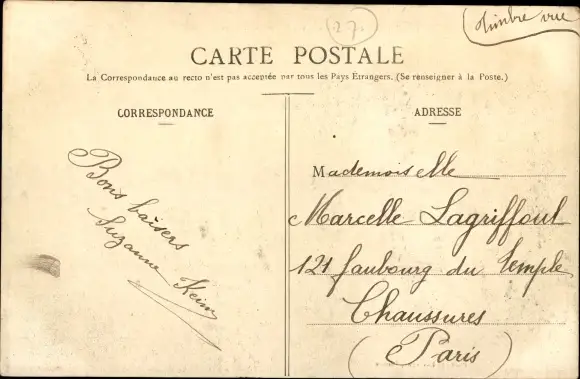 27.
Timbre vue
CARTE POSTALE
La Correspondance au recto n'est pas acceptée par tous les Pays Etrangers. (Se renseigner à la Poste.)
CORRESPONDANCE
Bons baisers
Suzanne Keim
ADRESSE
Mademoiselle
Marcelle Lagriffoul
121 faubourg du Temple
Chaussures
(Paris)